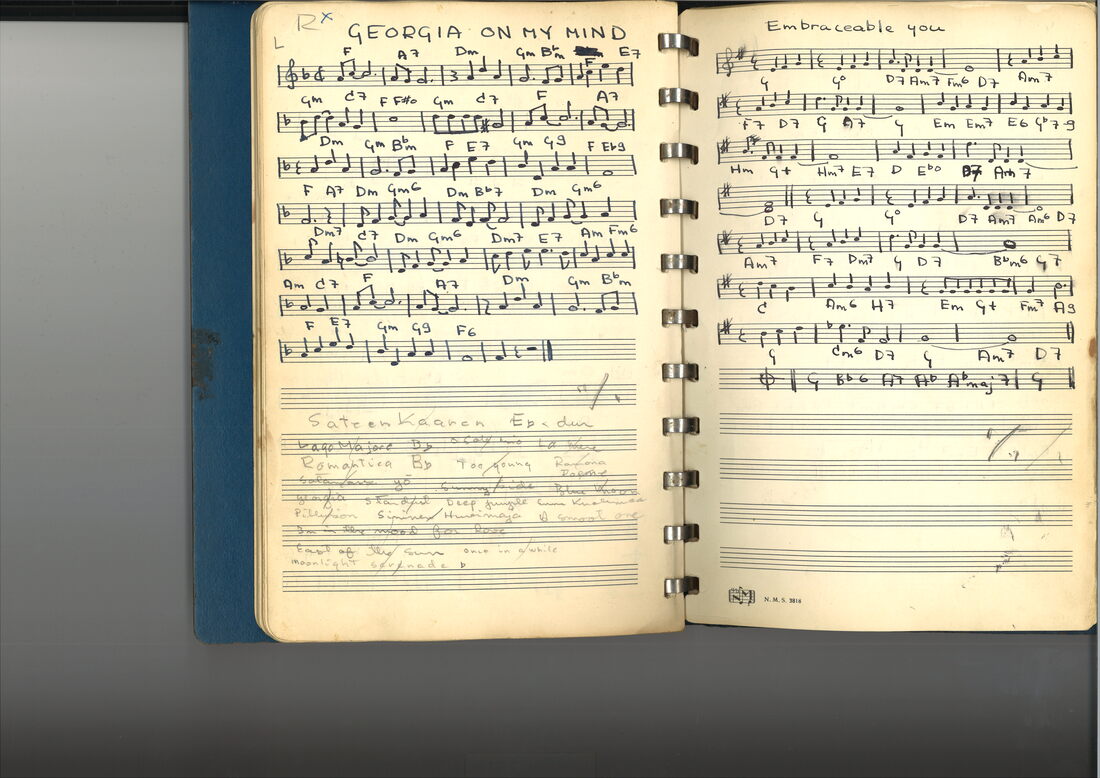 Rx
L
GEORGIA ON MY MIND
F A7 Dm Gm Bbm F E7
Gm C7 F F#o Gm C7 F A7
Dm Gm Bbm F E7 Gm G9 F Eb9
F A7 Dm Gm6 Dm Bb7 Dm Gm6
Dm7 C7 Dm Gm6 Dm7 E7 Am Fm6
Am C7 F A7 Dm Gm Bbm
F E7 Gm G9 F6
Sateen Kaaren Eb dur
Lago Majore Db o sole mio La mere
Romantica Bb Too young Ramona
Satumaa yö Sunny side Blue moon
georgia Stardust Deep purple
A smoot one
I'm in the mood for love
East of the sun once in a while
moonlight serenade b
Embraceable you
G Go D7 Am7 Fm6 D7 Am7
F7 D7 G A7 G Em Em7 E6 Gb7-9
Hm G+ Hm7 E7 D Ebo D7 Am7
D7 G Go D7 Am7 Am6 D7
Am7 F7 Dm7 G D7 Bbm6 G7
C Am6 H7 Em G+ Fm7 A9
G Cm6 D7 G Am7 D7
G Bb6 A7 Ab Abmaj7 G
N. M. S. 3816